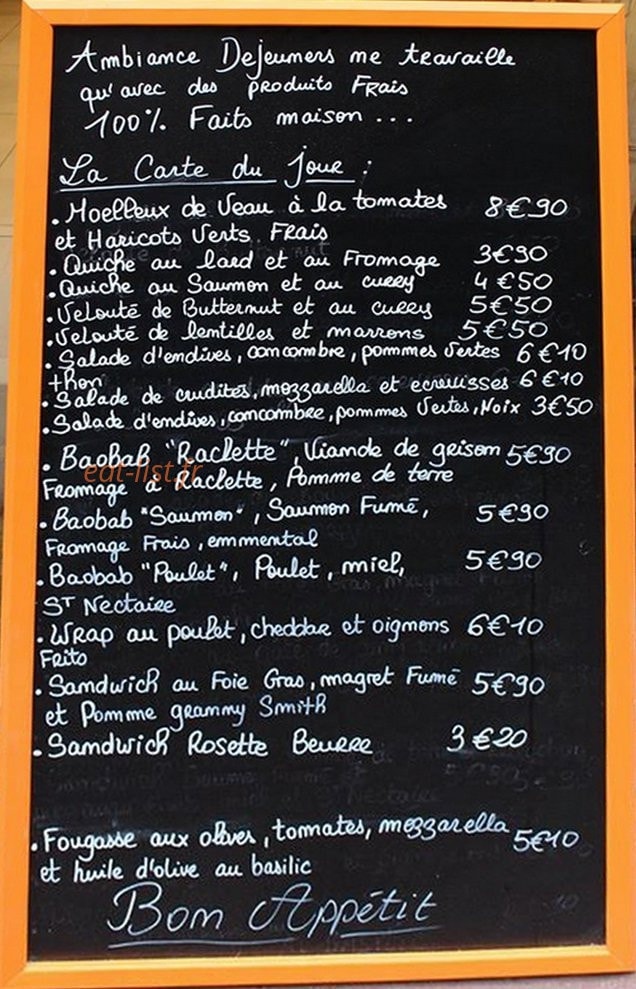 Ambiance Dejeuners ne travaille
qu'avec des produits Frais
100% Faits maison ...
La Carte du Jour :
. Moelleux de Veau à la tomates 8€90
et Haricots Verts Frais
. Quiche au lard et au Fromage 3€90
. Quiche au Saumon et au curry 4€50
. Velouté de Butternut et au curry 5€50
. Velouté de lentilles et marrons 5€50
. Salade d'endives, concombre, pommes Vertes 6€10
+ thon
. Salade de crudités, mozzarella et ecrevisses 6€10
. Salade d'endives, concombre, pommes Vertes, Noix 3€50
. Baobab "Raclette", Viande de grison 5€90
Fromage à Raclette, Pomme de terre
eat-list.fr
. Baobab "Saumon", Saumon Fumé, 5€90
Fromage Frais, emmental
. Baobab "Poulet", Poulet, miel, 5€90
ST Nectaire
. Wrap au poulet, cheddar et oignons 6€10
Frits
. Sandwich au Foie Gras, magret Fumé 5€90
et Pomme granny Smith
. Sandwich Rosette Beurre 3€20
. Fougasse aux olives, tomates, mozzarella 5€10
et huile d'olive au basilic
Bon Appétit